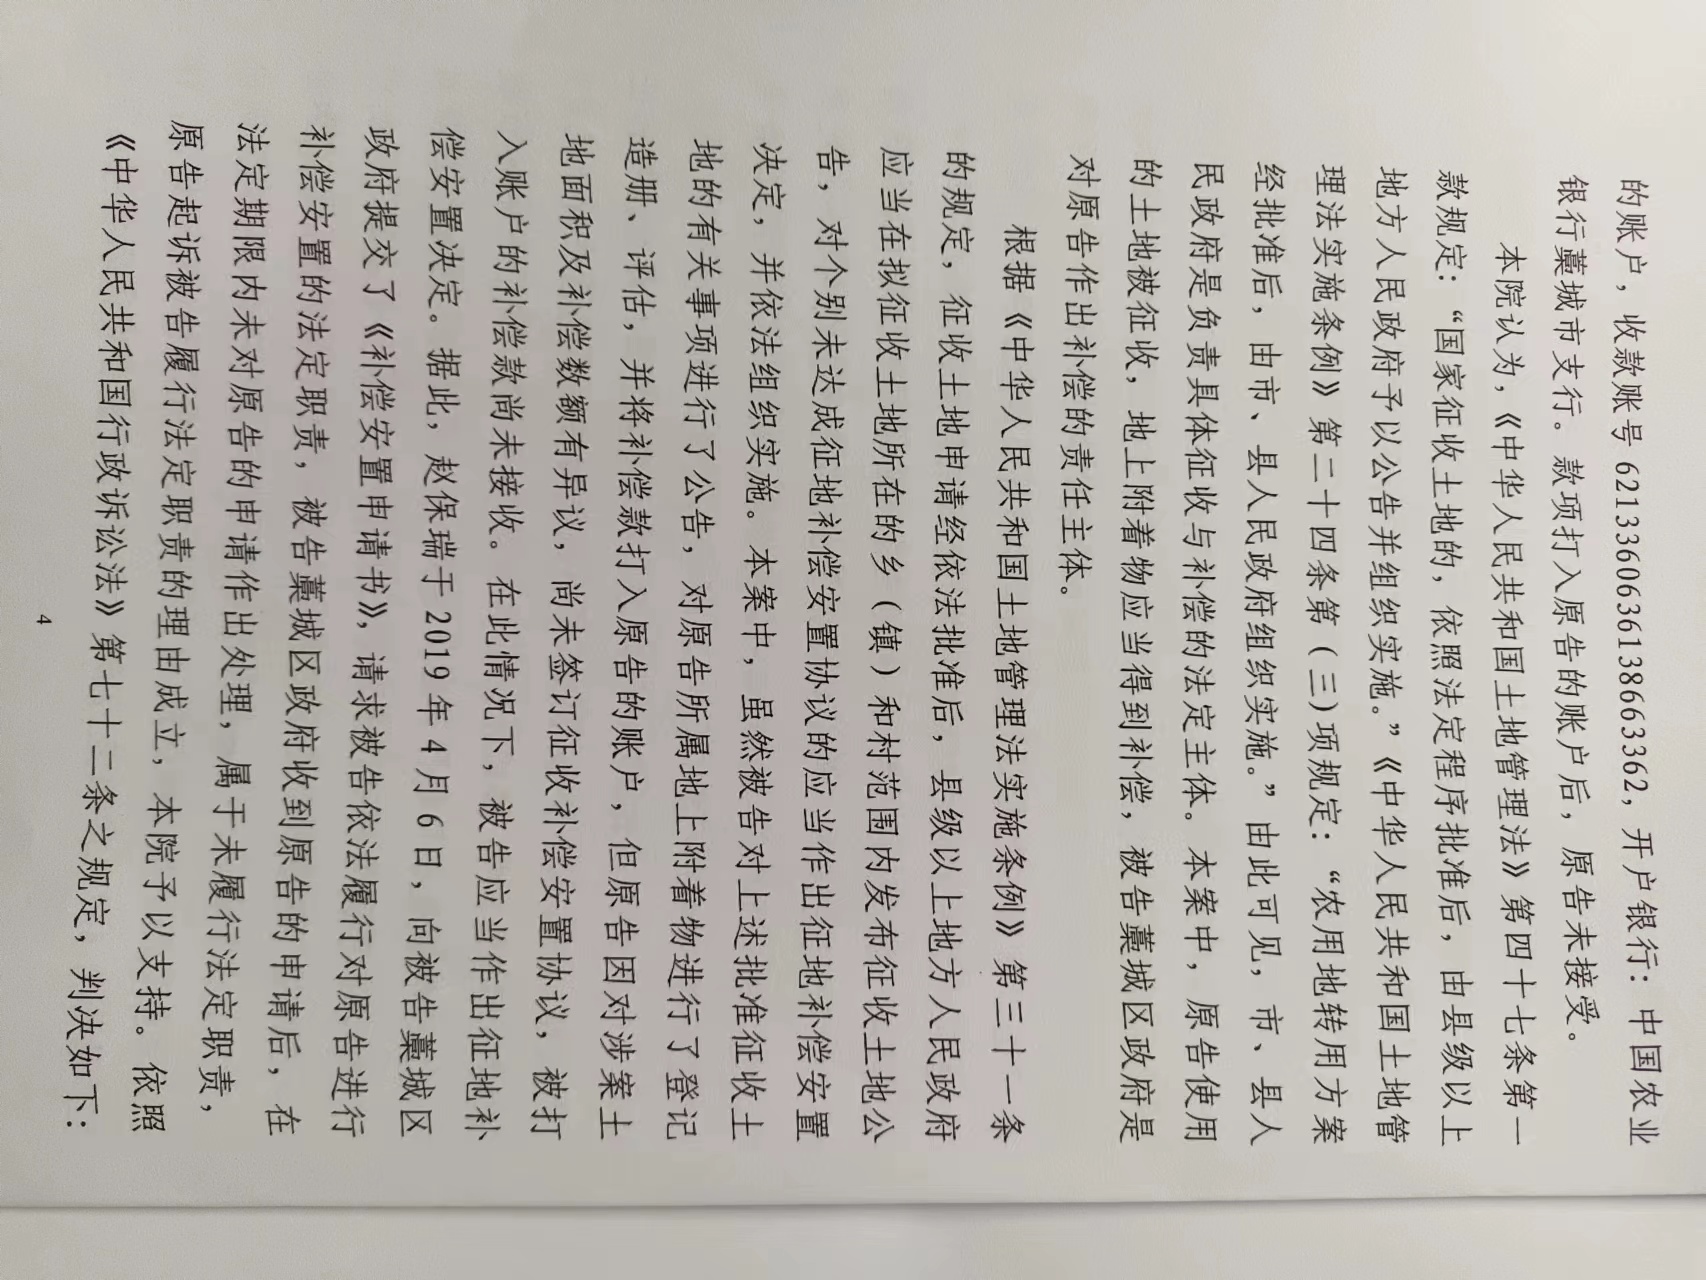 的账户，收款账号 6213360636138663362，开户银行：中国农业
银行藁城市支行。款项打入原告的账户后，原告未接受。
本院认为，《中华人民共和国土地管理法》第四十七条第一
款规定：“国家征收土地的，依照法定程序批准后，由县级以上
地方人民政府予以公告并组织实施。”《中华人民共和国土地管
理法实施条例》第二十四条第（三)项规定：“农用地转用方案
经批准后，由市、县人民政府组织实施。”由此可见，市、县人
民政府是负责具体征收与补偿的法定主体。本案中，原告使用
的土地被征收，地上附着物应当得到补偿，被告藁城区政府是
对原告作出补偿的责任主体。
根据《中华人民共和国土地管理法实施条例》第三十一条
的规定，征收土地申请经依法批准后，县级以上地方人民政府
应当在拟征收土地所在的乡（镇）和村范围内发布征收土地公
告，对个别未达成征地补偿安置协议的应当作出征地补偿安置
决定，并依法组织实施。本案中，虽然被告对上述批准征收土
地的有关事项进行了公告，对原告所属地上附着物进行了登记
造册、评估，并将补偿款打入原告的账户，但原告因对涉案土
地面积及补偿数额有异议，尚未签订征收补偿安置协议，被打
入账户的补偿款尚未接收。在此情况下，被告应当作出征地补
偿安置决定。据此，赵保瑞于 2019 年 4 月 6 日，向被告藁城区
政府提交了《补偿安置申请书》，请求被告依法履行对原告进行
补偿安置的法定职责，被告藁城区政府收到原告的申请后，在
法定期限内未对原告的申请作出处理，属于未履行法定职责，
原告起诉被告履行法定职责的理由成立，本院予以支持。依照
《中华人民共和国行政诉讼法》第七十二条之规定，判决如下：
4